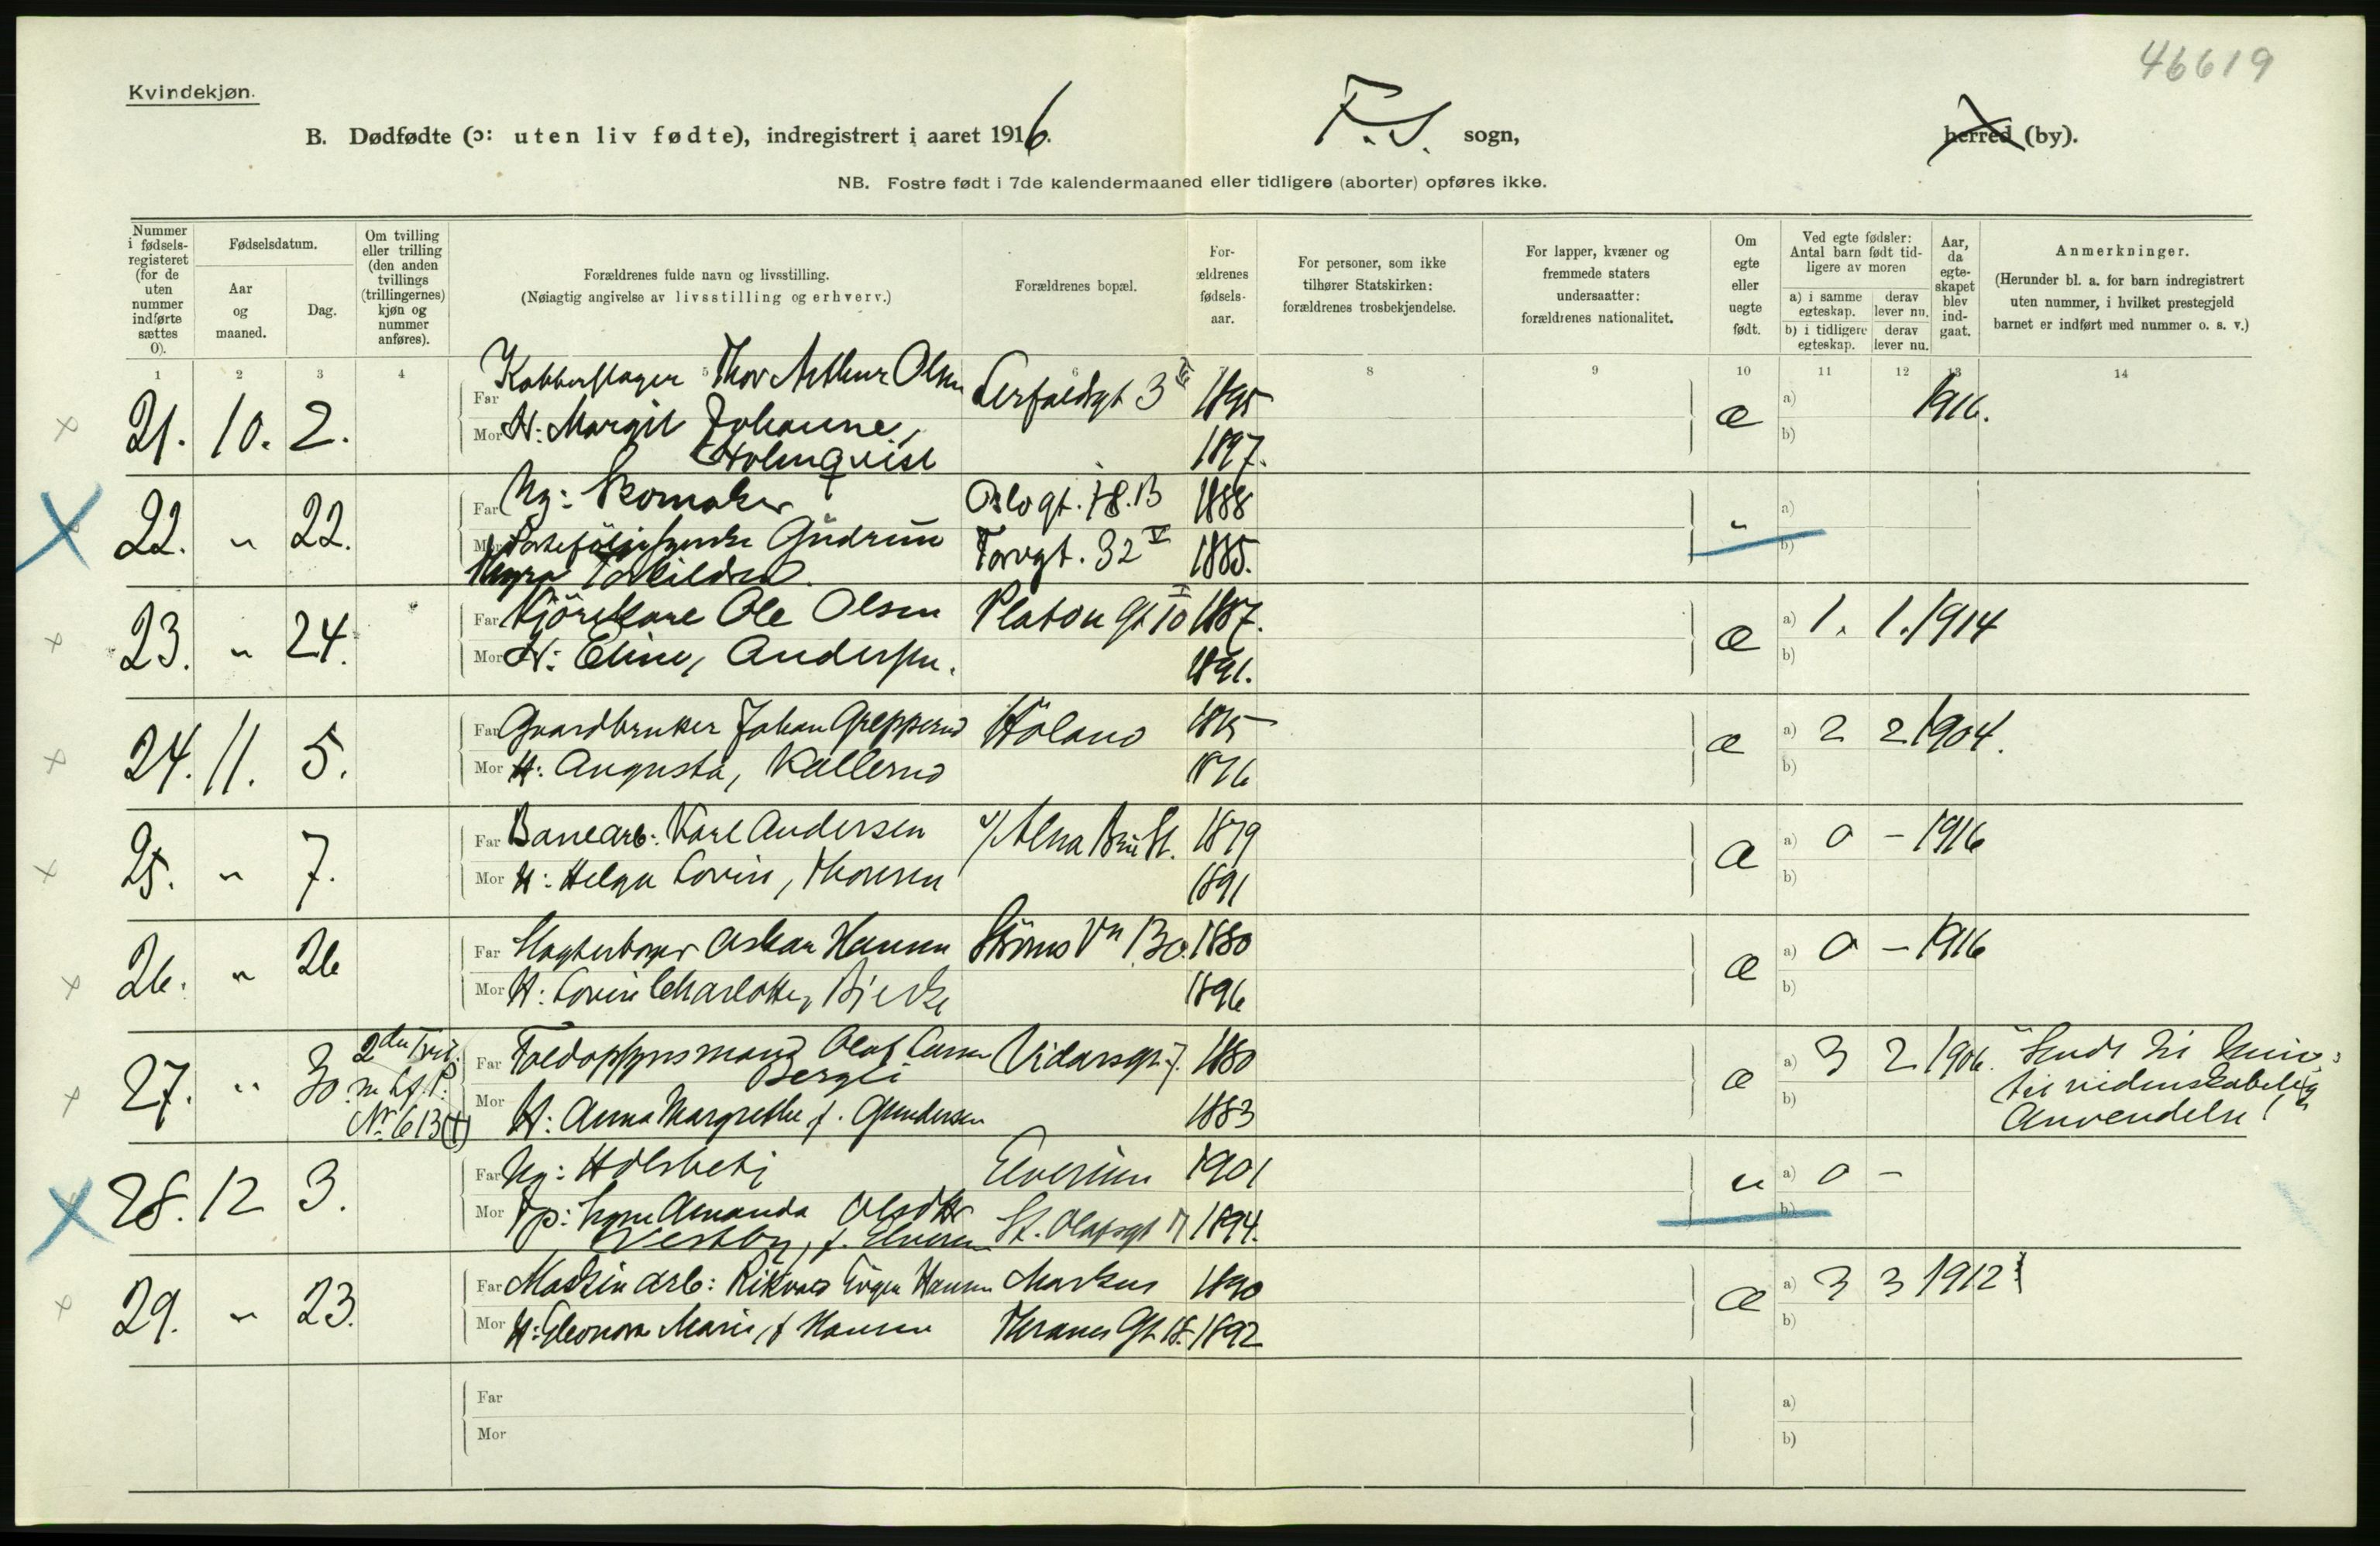 46619
Kvindekjøn.
B. Dødfødte (ɔ: uten liv fødte), indregistrert i aaret 1916. F. S. sogn, herred (by).
NB. Fostre født i 7de kalendermaaned eller tidligere (aborter) opføres ikke.
Nummer i fødsels-registeret (for de uten nummer indførte sættes 0).
Fødselsdatum.
Aar og maaned.
Dag.
Om tvilling eller trilling (den anden tvillings (trillingernes) kjøn og nummer anføres).
Forældrenes fulde navn og livsstilling.
(Nøiagtig angivelse av livsstilling og erhverv.)
Forældrenes bopæl.
For-ældrenes fødsels-aar.
For personer, som ikke tilhører Statskirken: forældrenes trosbekjendelse.
For lapper, kvæner og fremmede staters undersaatter: forældrenes nationalitet.
Om egte eller uegte født.
Ved egte fødsler: Antal barn født tid-ligere av moren
a) i samme egteskap. derav lever nu.
b) i tidligere egteskap. derav lever nu.
Aar, da egte-skapet blev ind-gaat.
Anmerkninger.
(Herunder bl. a. for barn indregistrert uten nummer, i hvilket prestegjeld barnet er indført med nummer o. s. v.)
1 2 3 4 5 6 8 9 10 11 12 13 14
21. 10. 2. Far Kobberslager Thor Arthur Olsen Lerfaldsgt 3 III 1895 æ a) 1916.
Mor H: Margit Johanne, 1897. b)
Holmqvist
22. " 22. Far Ug: Skomaker Oslogt. 78.B 1888 " a)
Mor Gudrun Torvgt. 32 V 1885. b)
Torkildsen
23. " 24. Far Kjörekare Ole Olsen Platou Gt 10 1887. æ a) 1. 1. 1914
Mor H: Eline, Andersen. 1891. b)
24. 11. 5. Far Gaardbruker Johan Grepperud Höland 1875 æ a) 2 2 1904.
Mor H: Augusta, Kallerud 1876 b)
25. " 7. Far Banearb: Karl Andersen v/ Alna Bru St. 1879 æ a) 0 – 1916
Mor H: Helga Lovise, Thoresen 1891 b)
26. " 26 Far Oskar Hansen Ströms Vn 130. 1880 æ a) 0 – 1916
Mor H: Lovise Charlotte, Bjerke 1896 b)
27. " 30. 2den Tvil. Far Toldopsynsmand Olaf Larsen Vidarsgt. 7. 1880 æ a) 3 2 1906. Sendt til Univ:
m. Lf. P. Bergli til videnskabelig
No 613(1) Mor H: Anna Margrethe f. Gundersen 1883 b) Anvendelse!
28. 12 3. Far Ug: Elverum 1901 u a) 0 –
Mor Tp: Amanda Olsdtr St. Olafsgt 17 1894. b)
Vestby, f. Elverum
29. " 23. Far Maskinarb: Rikvald Evgen Hansen Markus 1890 æ a) 3 3 1912
Mor H: Eleonora Marie, f Hansen Thranes Gt. 18. 1892 b)
Far a)
Mor b)